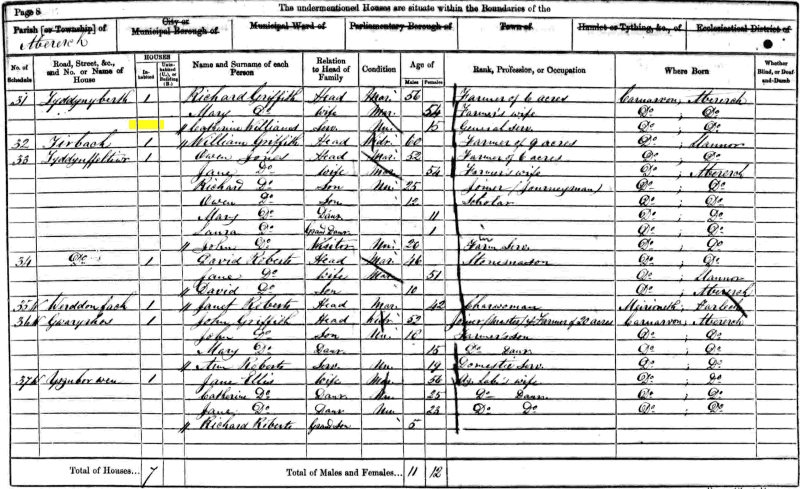 Page 8
The undermentioned Houses are situate within the Boundaries of the
Parish [or Township] of Abererch
City or Municipal Borough of
Municipal Ward of
Parliamentary Borough of
Town of
Hamlet or Tything, &c., of
Ecclesiastical District of
No. of Schedule
Road, Street, &c., and No. or Name of House
HOUSES
Inhabited
Uninhabited (U.), or Building (B.)
Name and Surname of each Person
Relation to Head of Family
Condition
Age of
Males
Females
Rank, Profession, or Occupation
Where Born
Whether Blind, or Deaf-and-Dumb
31 1 Richard Griffith Head Mar. 56 Farmer of 6 acres Carnarvon, Abererch
Mary Do Wife Mar. 54 Farmer's wife Do ; Do
" Catherine Williams Serv. Un. 15 General serv. Do ; Do
32 Tirbach 1 " William Griffith Head 60 Farmer of 9 acres Do ; Llannor
33 1 Owen Jones Head Mar. 52 Farmer of 6 acres Do ; Do
Jane Do Wife Mar. 54 Farmer's wife Do ; Abererch
Richard Do Son Un. 25 Joiner (Journeyman) Do ; Do
Owen Do Son 12 Scholar Do ; Do
Mary Do Daur. 11 Do ; Do
Laura Do Grand Daur. 1 Do ; Do
" John Do Visitor Un. 20 Farm Serv. Do ; Do
34 Do 1 David Roberts Head Mar. 46 Stonemason Do ; Do
Jane Do Wife Mar. 51 Do ; Llannor
" David Do Son 10 Do ; Abererch
35 1 " Janet Roberts Head Mar. 42 Charwoman
36 1 John Griffith Head 52 Joiner (Master) & Farmer of 20 acres Carnarvon, Abererch
John Do Son Un. 18 Farmer's son Do ; Do
Mary Do Daur. 15 Do Daur. Do ; Do
" Ann Roberts Serv. Un. 19 Domestic Serv. Do ; Do
37 1 Jane Ellis Wife Mar. 56 Ag. Lab's wife Do ; Do
Catherine Do Daur. Un. 25 Do Daur. Do ; Do
Jane Do Daur. Un. 23 Do Do Do ; Do
" Richard Roberts Grand Son 5
Total of Houses... 7
Total of Males and Females... 11 12